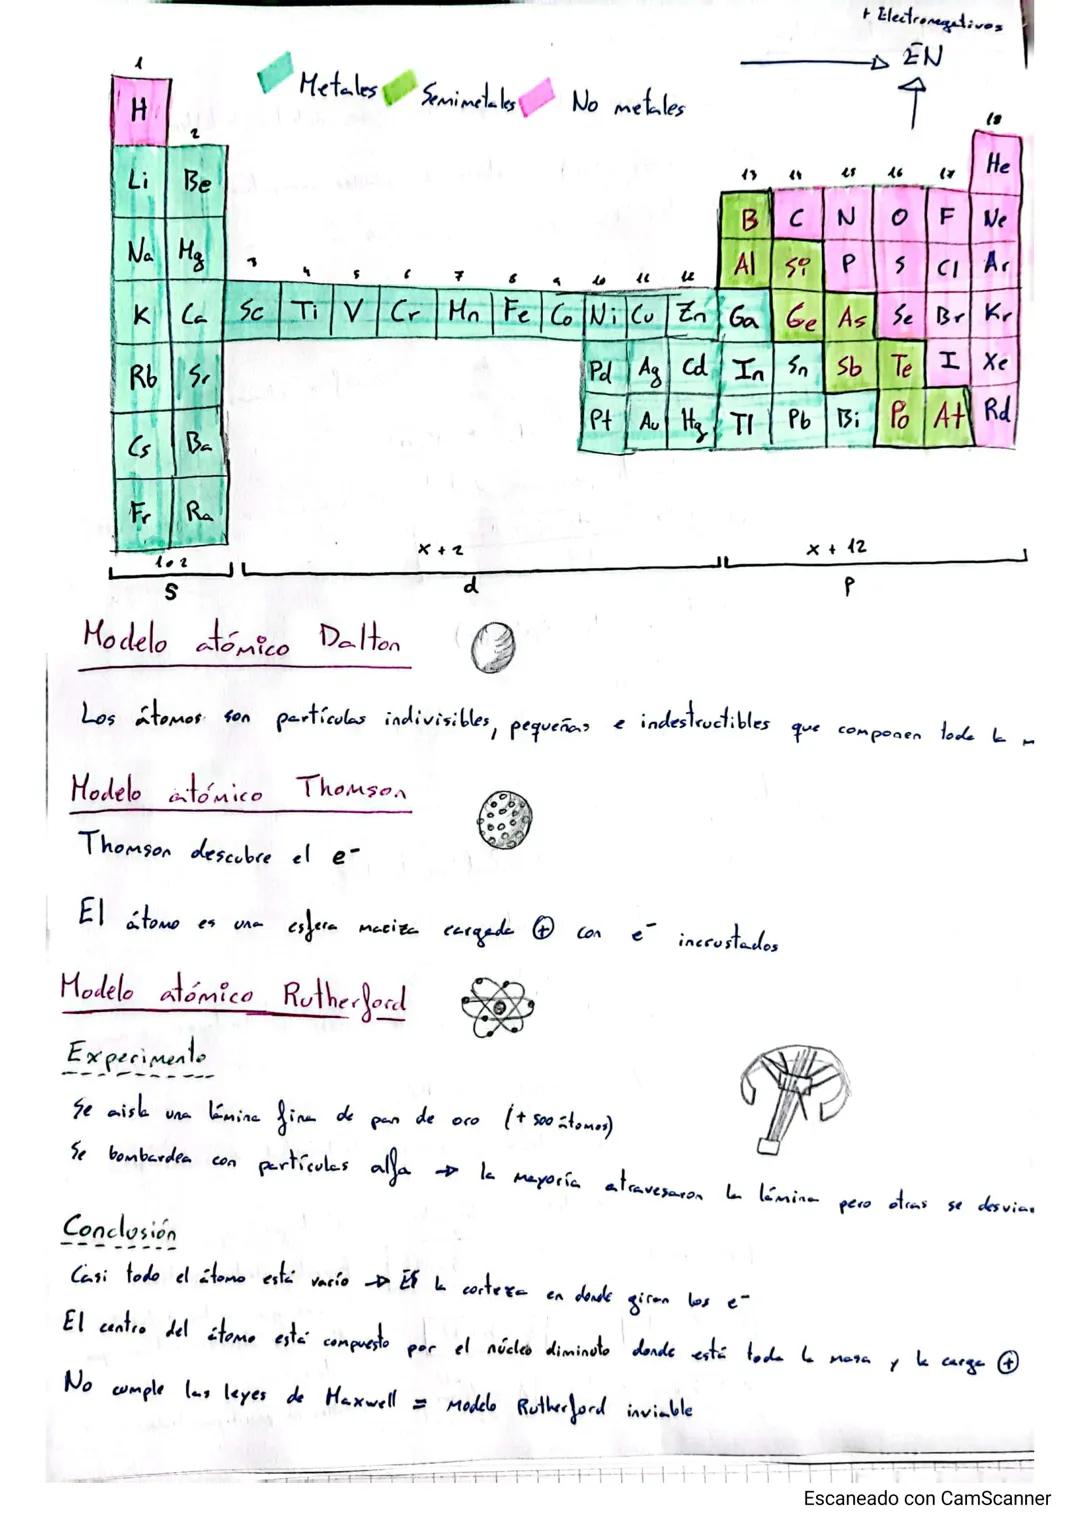 + Electronegativos
EN
Metales Semimetales No metales
1
H
2
18
Li Be
13 14 15 16 17
He
B C N O F Ne
Na Mg
3 4 5 6 7 8 9 10 11 12
Al Si P S Cl Ar
K Ca Sc Ti V Cr Mn Fe Co Ni Cu Zn Ga Ge As Se Br Kr
Rb Sr Pd Ag Cd In Sn Sb Te I Xe
Cs Ba Pt Au Hg Tl Pb Bi Po At Rd
Fr Ra
1 o 2 x + 2 x + 12
s d p
Modelo atómico Dalton
Los átomos son partículas indivisibles, pequeñas e indestructibles que componen toda la m
Modelo atómico Thomson
Thomson descubre el e-
El átomo es una esfera maciza cargada + con e- incrustados
Modelo atómico Rutherford
Experimento
Se aisla una lámina fina de pan de oro (+ 500 átomos)
Se bombardea con partículas alfa → la mayoría atravesaron la lámina pero otras se desvian
Conclusión
Casi todo el átomo está vacío → Es la corteza en donde giran los e-
El centro del átomo está compuesto por el núcleo diminuto donde está toda la masa y la carga +
No cumple las leyes de Maxwell = Modelo Rutherford inviable
Escaneado con CamScanner